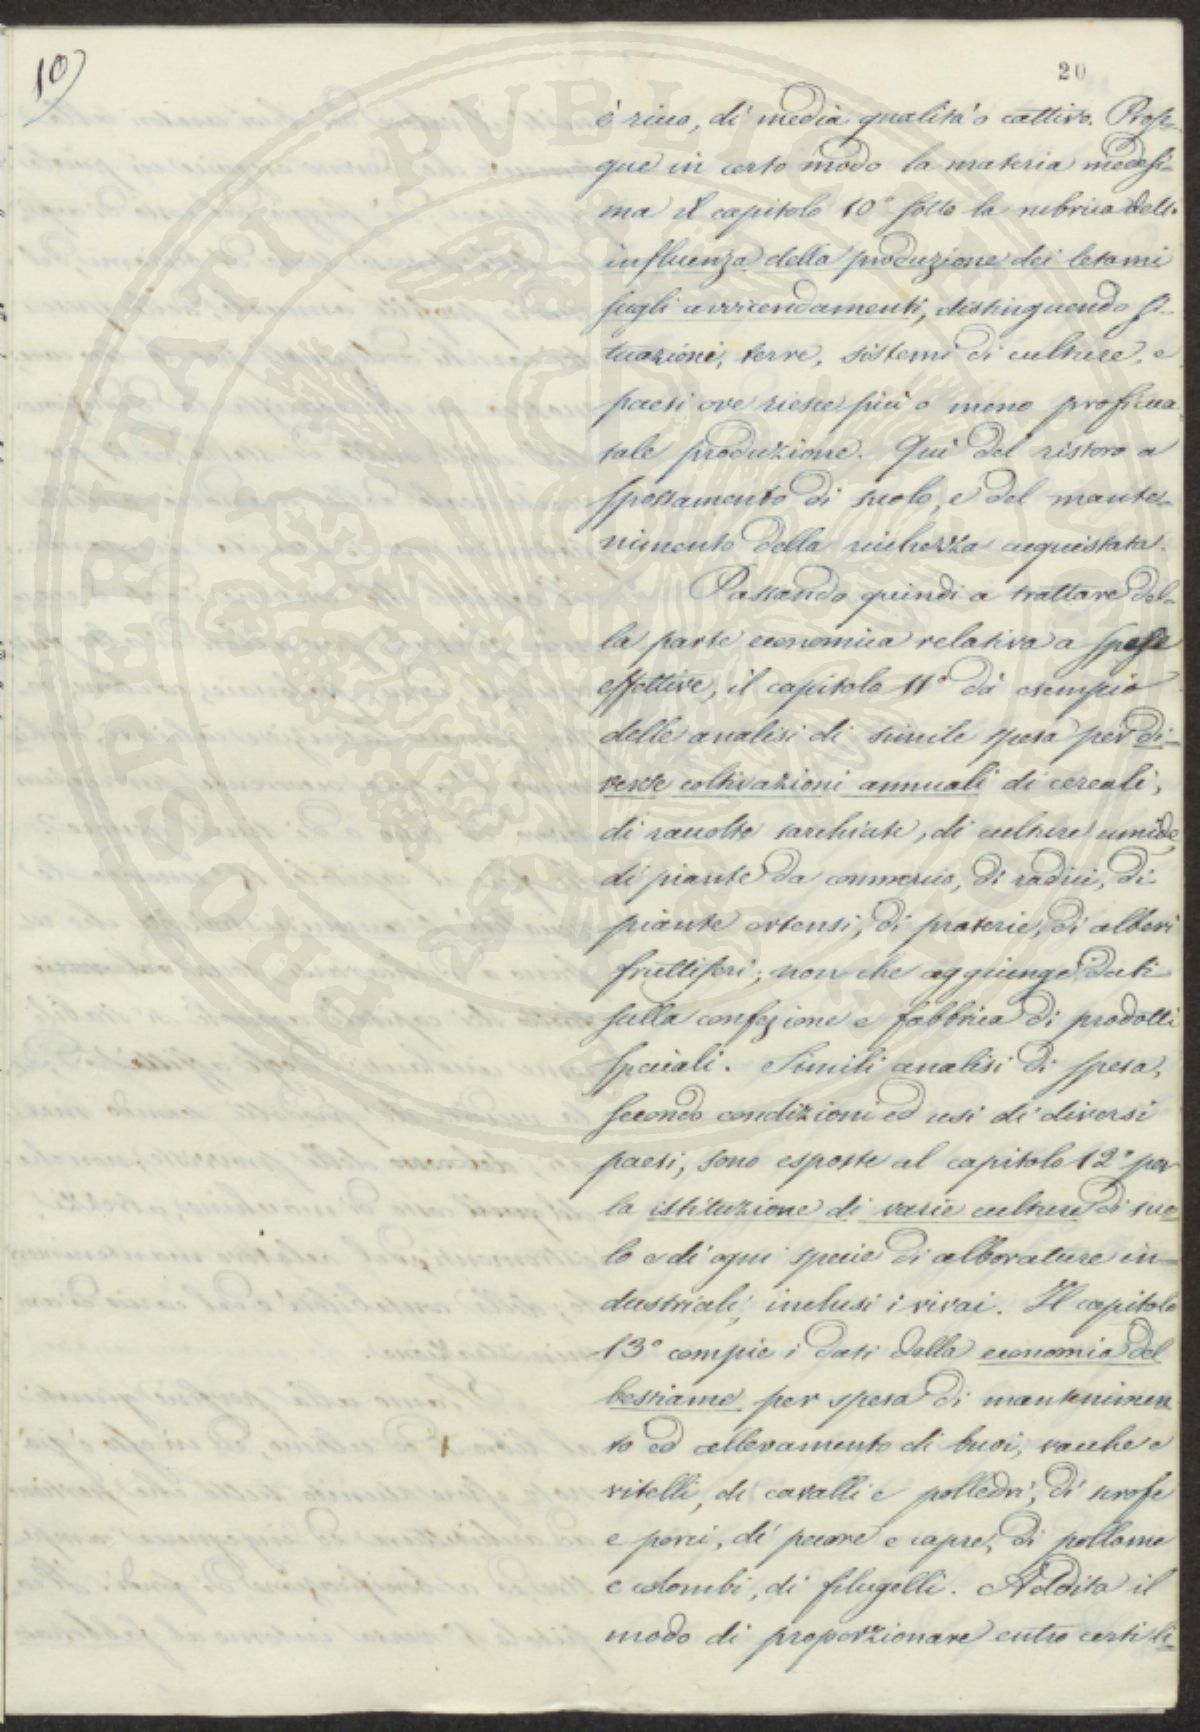 10)
20
è ricco, di media qualità o cattivo. Prose-
gue in certo modo la materia medesi-
ma il capitolo 10° sotto la rubrica dell'
influenza della produzione dei letami
sugli avvicendamenti, distinguendo si-
tuazioni, terre, sistemi di culture, e
paesi ove riesce più o meno proficua
tale produzione. Qui del ristoro a
spossamento di suolo, e del mante-
nimento della ricchezza acquistata.
Passando quindi a trattare del-
la parte economica relativa a spese
effettive, il capitolo 11° dà esempio
delle analisi di simile spesa per di-
verse coltivazioni annuali di cereali,
di raccolte sarchiate, di culture umide,
di piante da commercio, di radici, di
piante ortensi, di praterie, di alberi
fruttiferi; non che aggiunge dati
sulla confezione e fabbrica di prodotti
speciali. Simili analisi di spesa,
secondo condizioni ed usi di diversi
paesi, sono esposte al capitolo 12° per
la istituzione di varie culture di suo-
lo e di ogni specie di alborature in-
dustriali, inclusi i vivai. Il capitolo
13° compie i dati della economia del
bestiame, per spesa di mantenimen
to ed allevamento di buoi, vacche e
vitelli, di cavalli e polledri, di scrofe
e porci, di pecore e capre, di pollame
e colombi, di filugelli. Addita il
modo di proporzionare entro certi li-
PROSPERITATI PVBLICAE